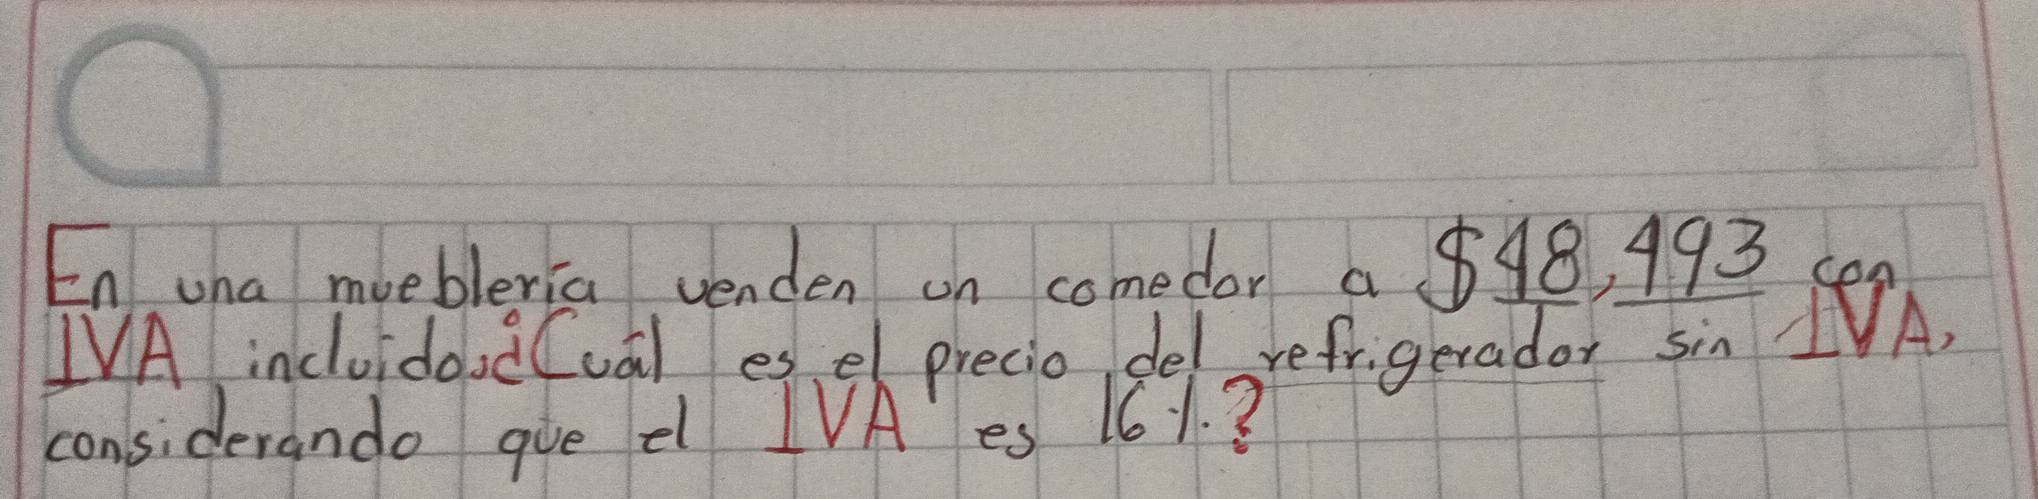 En una mueblería venden un comedor a $48,493 con
IVA incluido. ¿Cuál es el precio del refrigerador sin IVA,
considerando que el IVA es 16%.?